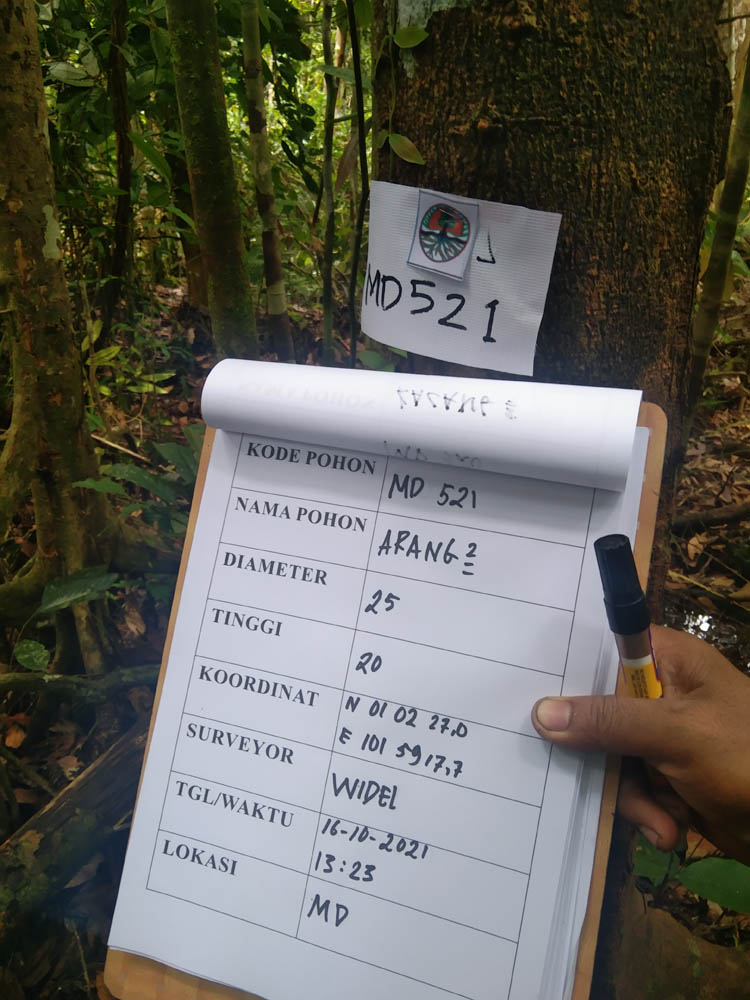 MD521
KODE POHON MD 521
NAMA POHON ARANG 2
DIAMETER 25
TINGGI 20
KOORDINAT N 01 02 27,0
E 101 59 17,7
SURVEYOR WIDEL
TGL/WAKTU 16-10-2021
13:23
LOKASI MD